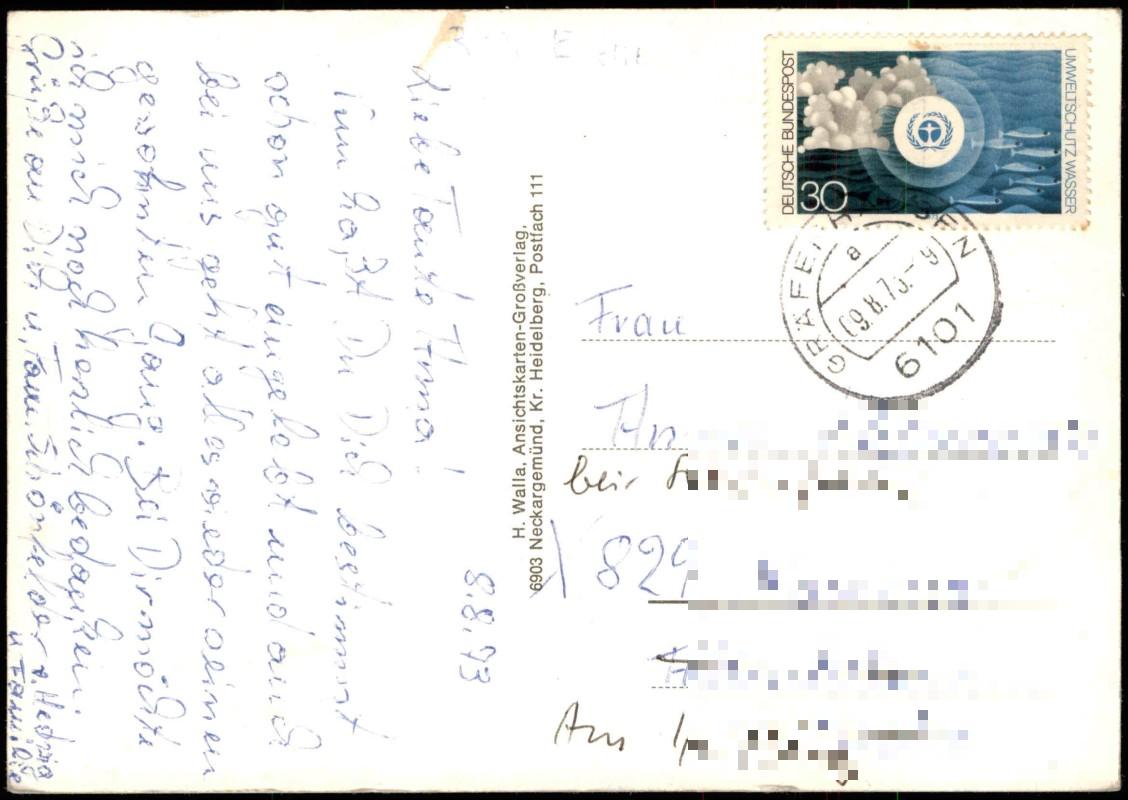 8.8.73
Liebe Tante Anna!
Nun hast Du Dich bestimmt
schon gut eingelebt und auch
bei uns geht alles wieder seinen
gewohnten Gang. Bei Dir möchte
ich mich noch herzlich bedanken
Grüße an Dich u. Fam.
u. Familie
H. Walla, Ansichtskarten-Großverlag,
6903 Neckargemünd, Kr. Heidelberg, Postfach 111
DEUTSCHE BUNDESPOST
30
UMWELTSCHUTZ WASSER
a
09.8.73.-9
6101
Frau
An
bei
829
Am